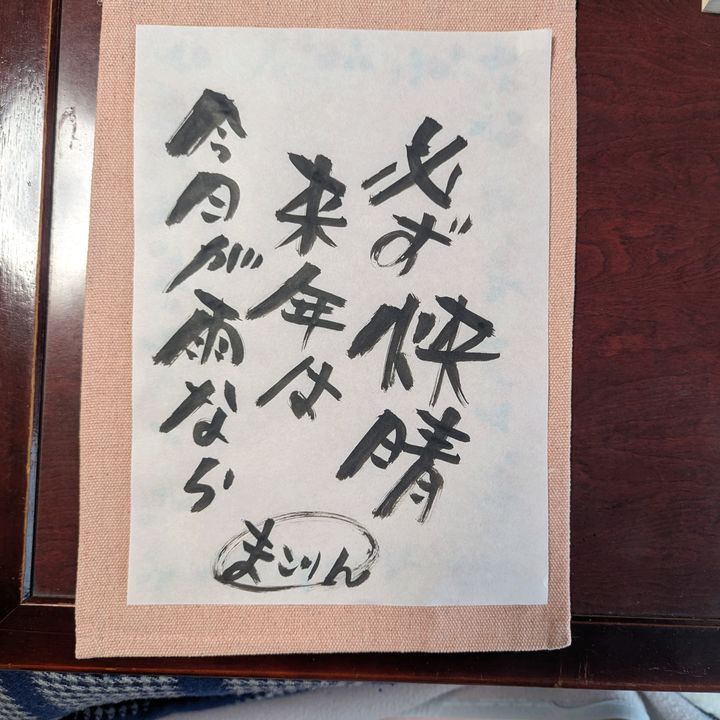 今日が雨なら
来年は
必ず快晴
まこりん